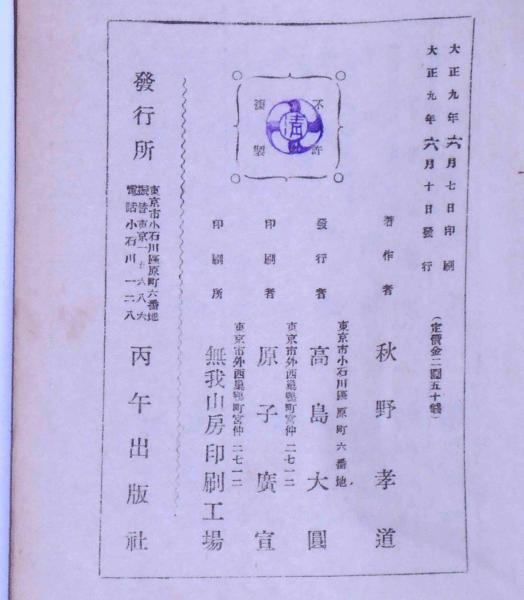 大正九年六月七日印刷
大正九年六月十日發行
(定價金二圓五十錢)
不許
複製
著作者 秋野孝道
東京市小石川區原町六番地
發行者 高島大圓
東京市外西巢鴨町宮仲二七一二
印刷者 原子廣宣
東京市外西巢鴨町宮仲二七一二
印刷所 無我山房印刷工場
發行所
東京市小石川區原町六番地
振替東京一七六八六
電話小石川一二八
丙午出版社